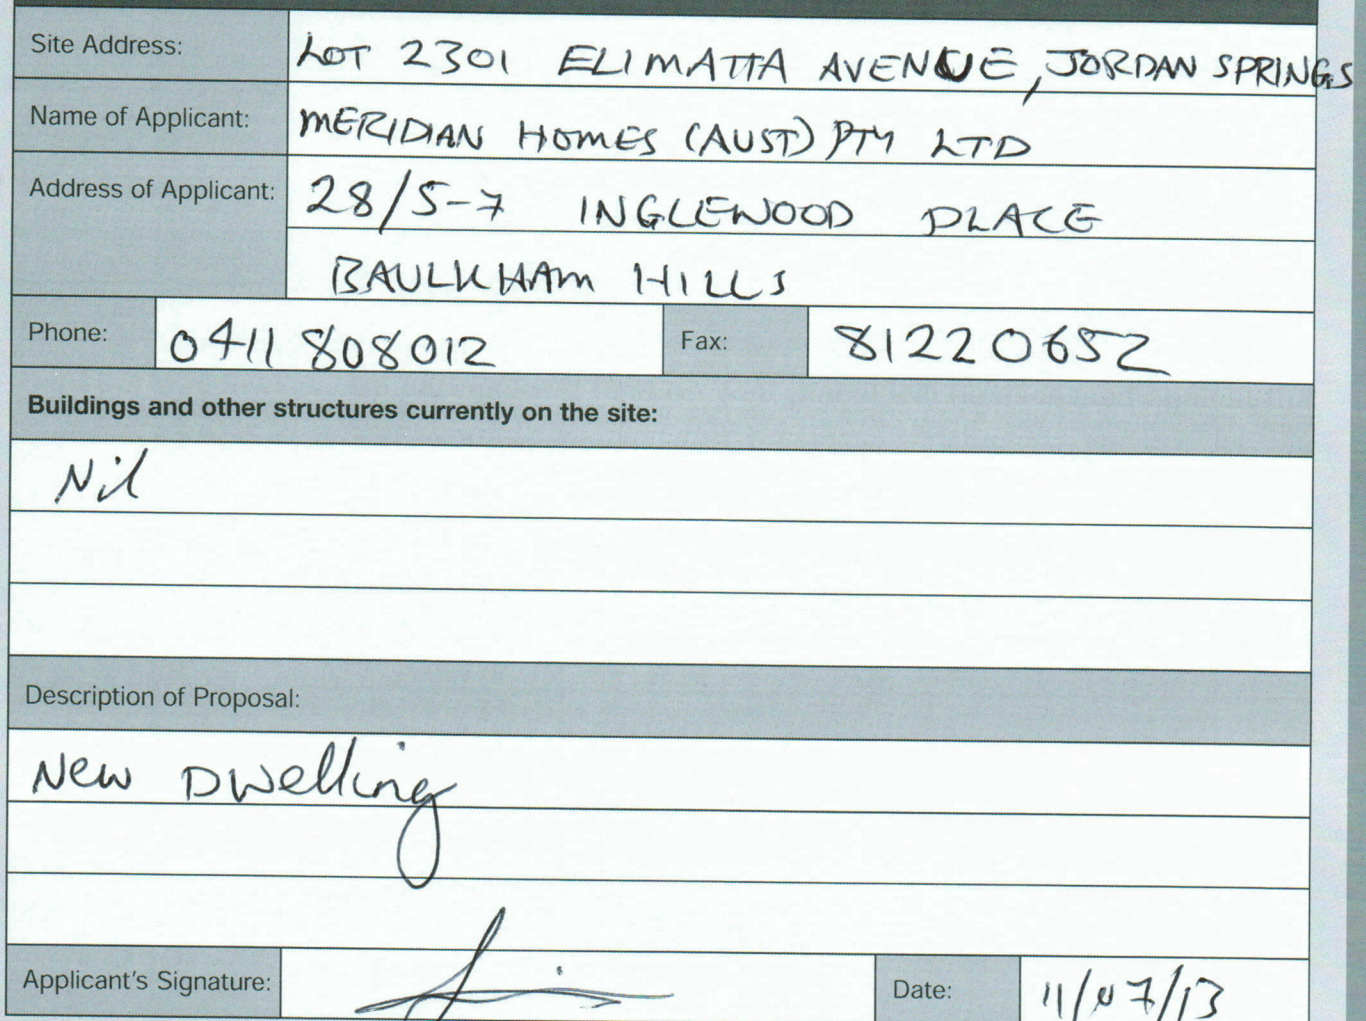 Site Address: LOT 2301 ELIMATTA AVENUE, JORDAN SPRINGS
Name of Applicant: MERIDIAN HOMES (AUST) PTY LTD
Address of Applicant: 28/5-7 INGLEWOOD PLACE
BAULKHAM HILLS
Phone: 0411 808012 Fax: 81220652
Buildings and other structures currently on the site:
Nil
Description of Proposal:
New Dwelling
Applicant's Signature: Date: 11/07/13